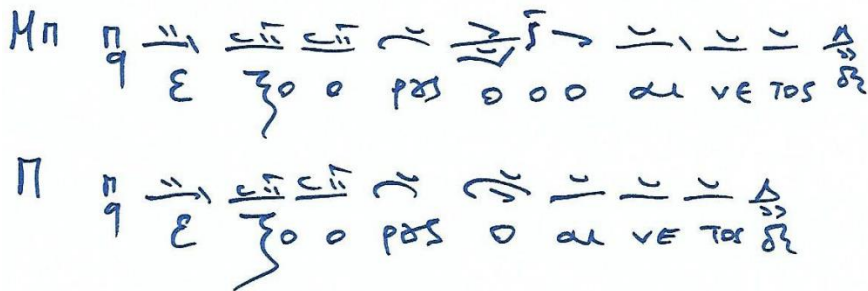 Μπ π Δ
q Ε ξο ο ρȣς ο ο ο αι νε τος
Π π Δ
q Ε ξο ο ρȣς ο αι νε τος